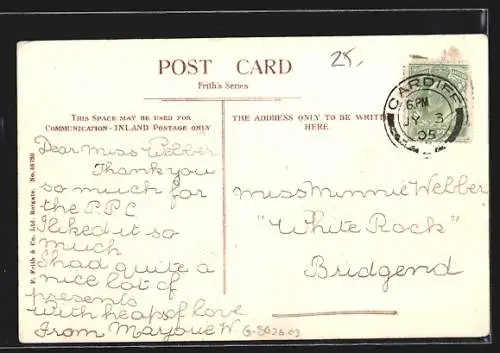 POST CARD
Frith's Series
25,
THIS SPACE MAY BE USED FOR
COMMUNICATION - INLAND POSTAGE ONLY
THE ADDRESS ONLY TO BE WRITTEN
HERE.
CARDIFF
6.PM
JY 3
05
Dear Miss Webber
Thank you
so much for
the P.P.C
I liked it so
much
I had quite a
nice lot of
presents
with heaps of love
From W.
Miss Minnie Webber
"White Rock"
Bridgend
F. Frith & Co. Ltd. Reigate.